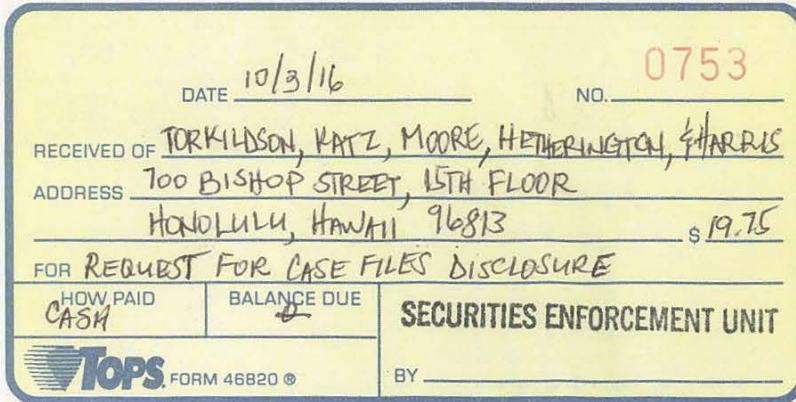 0753
DATE 10/3/16 NO.
RECEIVED OF TORKILDSON, KATZ, MOORE, HETHERINGTON, & HARRIS
ADDRESS 700 BISHOP STREET, 15TH FLOOR
HONOLULU, HAWAII 96813 $ 19.75
FOR REQUEST FOR CASE FILES DISCLOSURE
HOW PAID BALANCE DUE
CASH 0
SECURITIES ENFORCEMENT UNIT
TOPS FORM 46820 ® BY